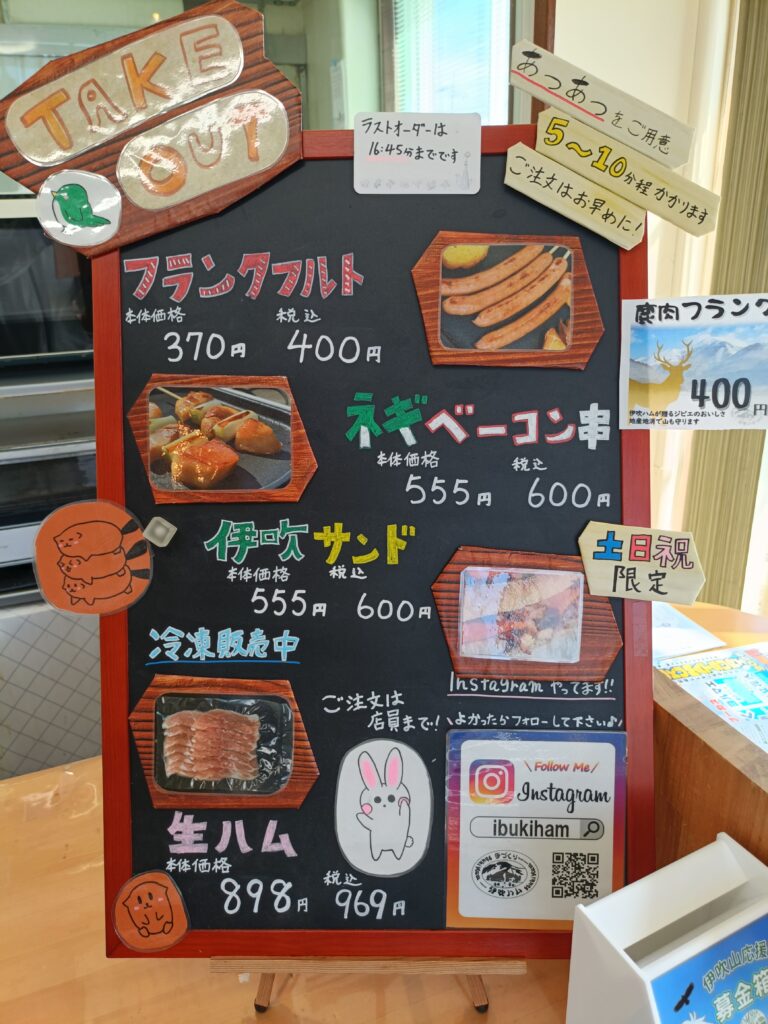 TAKE
OUT
ラストオーダーは
16:45分までです
あつあつをご用意
5〜10分程かかります
ご注文はお早めに!
フランクフルト
本体価格 税込
370円 400円
鹿肉フランク
400円
伊吹ハムが贈るジビエのおいしさ
地産地消で山も守ります
ネギベーコン串
本体価格 税込
555円 600円
伊吹サンド
本体価格 税込
555円 600円
土日祝
限定
冷凍販売中
Instagramやってます!!
よかったらフォローして下さい♪
ご注文は
店員まで!
Follow Me
Instagram
ibukiham
手づくり
伊吹ハム
生ハム
本体価格 税込
898円 969円
伊吹山応援
募金箱